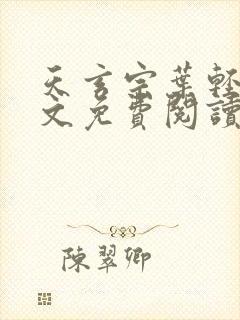 天玄宗葉輕
文免費閱讀
陳翠卿